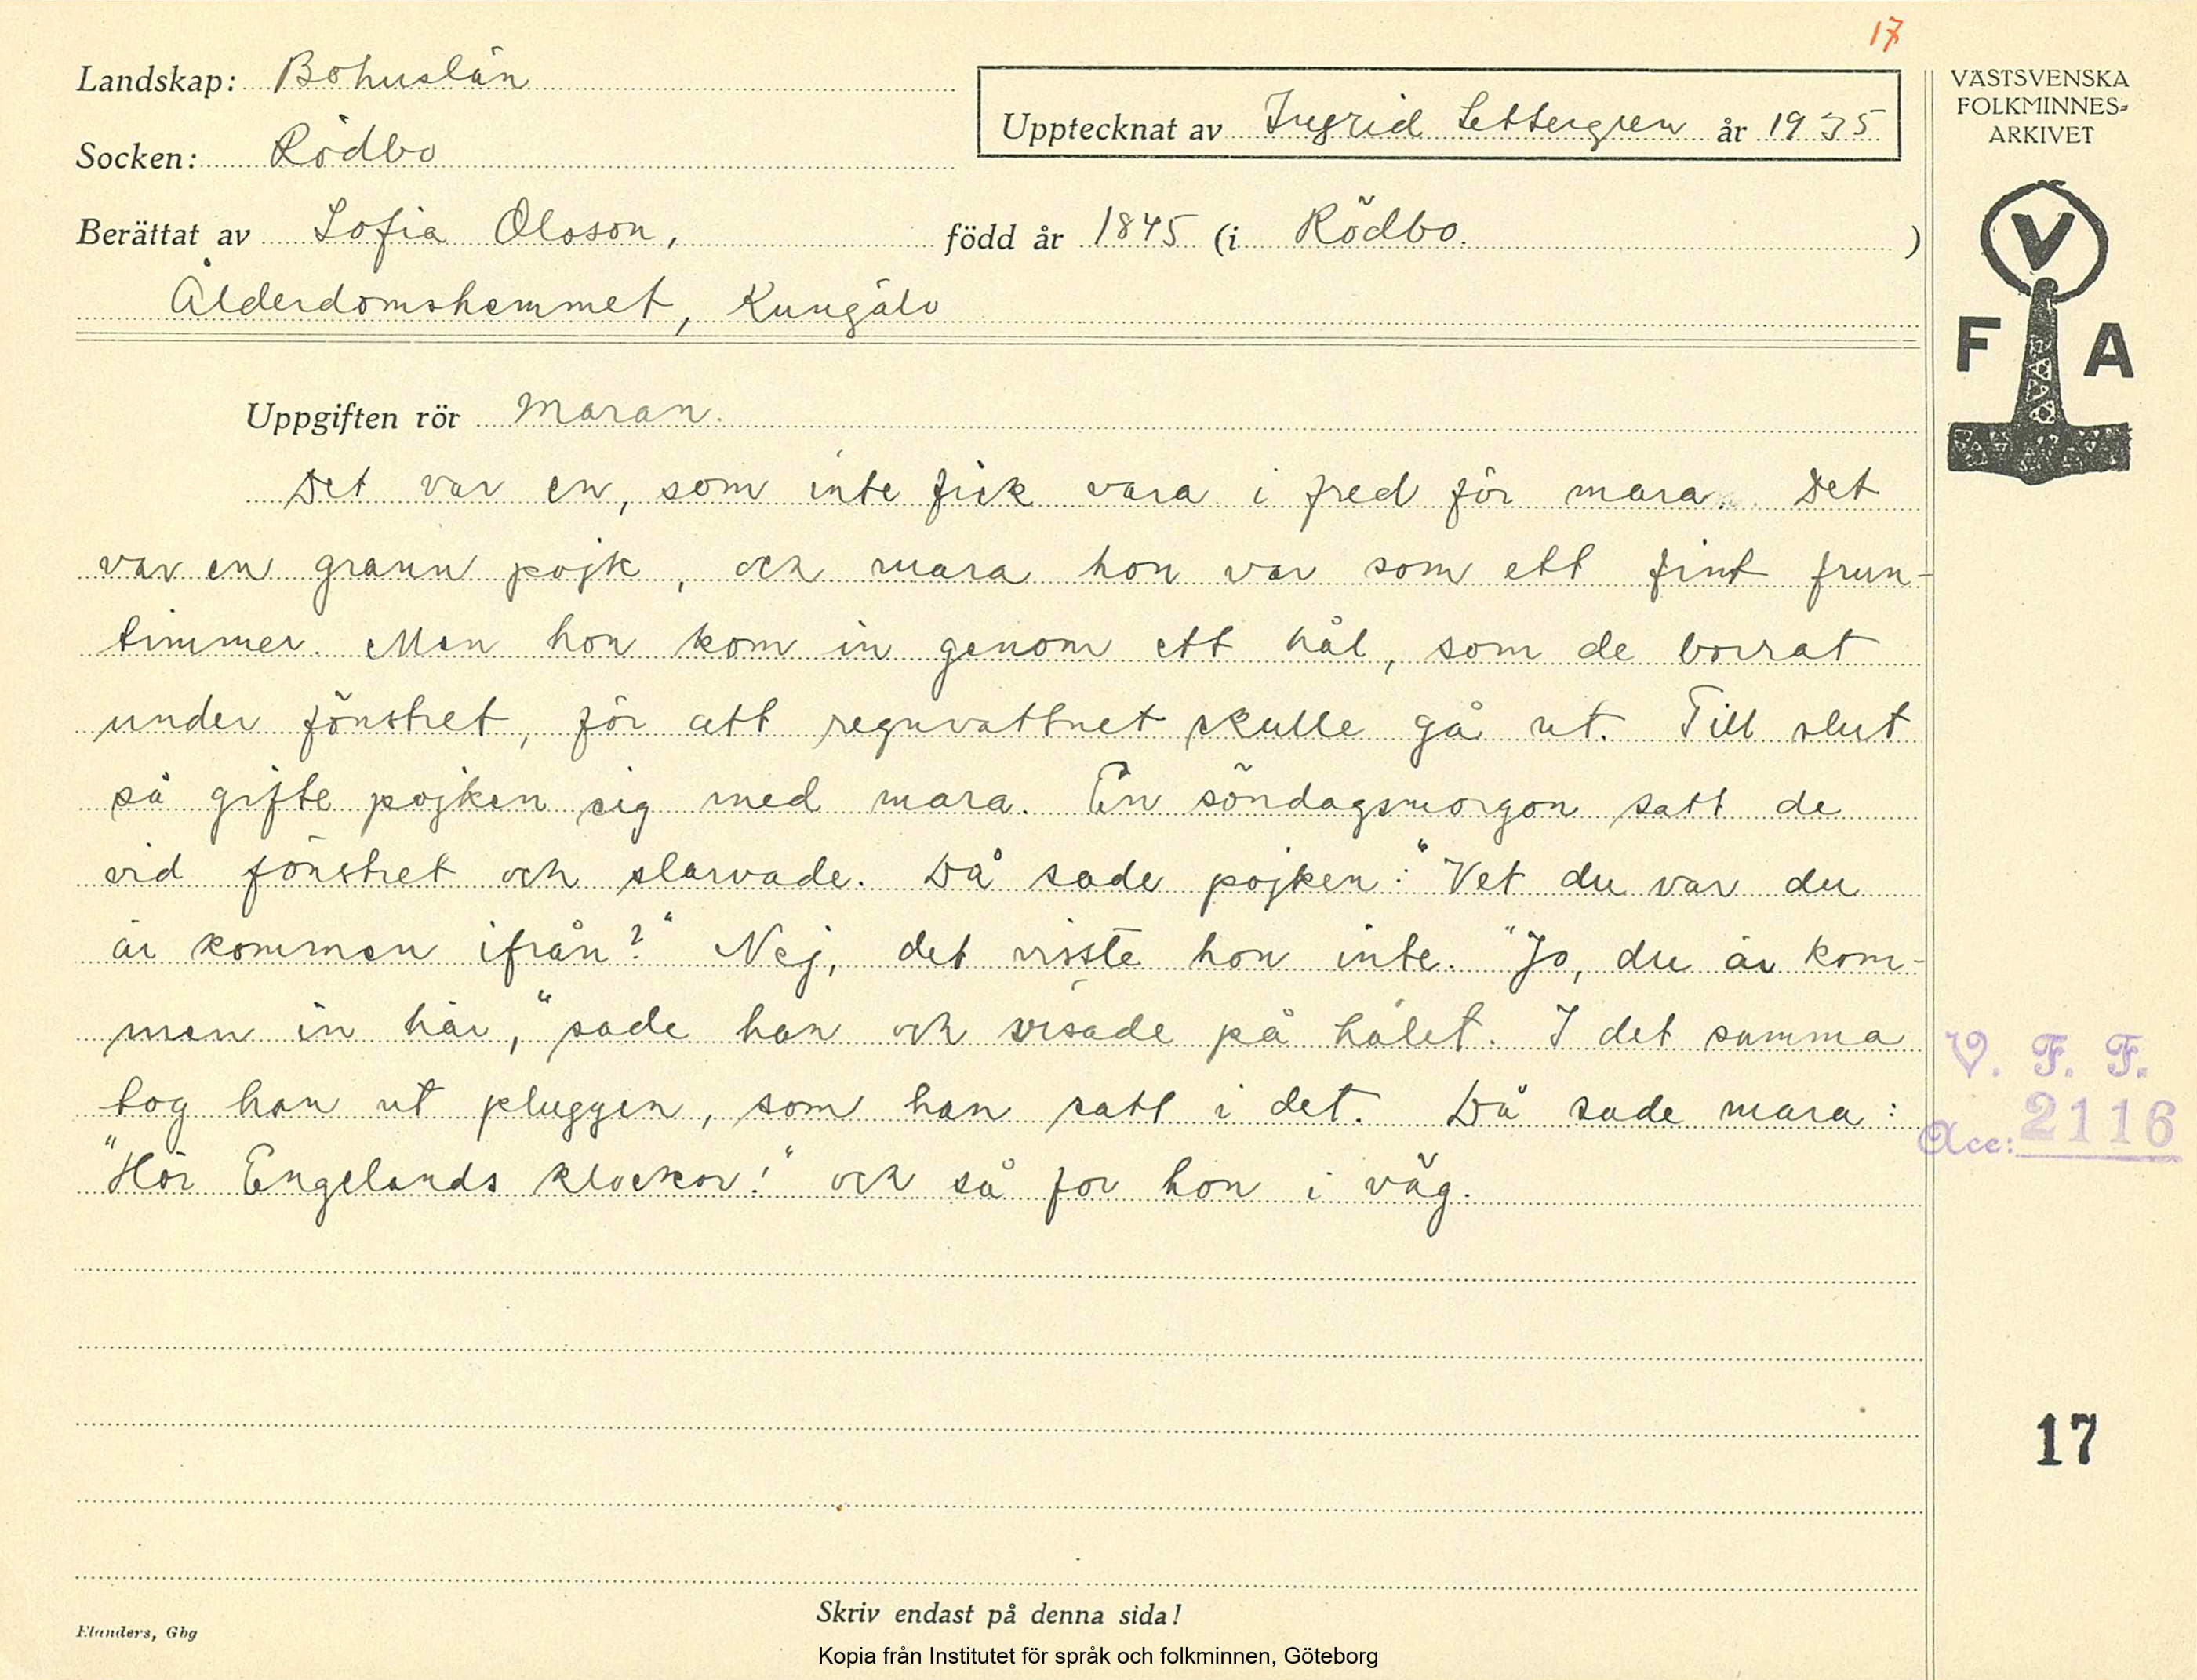 17
Landskap: Bohuslän
Upptecknat av Ingrid Settergren år 1935
Socken: Rödbo
Berättat av Sofia Olsson, född år 1845 (i Rödbo.)
Ålderdomshemmet, Kungälv
VÄSTSVENSKA
FOLKMINNES-
ARKIVET
V
F A
Uppgiften rör Maran.
Det var en, som inte fick vara i fred för mara. Det
var en grann pojk, och mara hon var som ett fint frun-
timmer. Men hon kom in genom ett hål, som de borrat
under fönstret, för att regnvattnet skulle gå ut. Till slut
så gifte pojken sig med mara. En söndagsmorgon satt de
vid fönstret och slarvade. Då sade pojken: "Vet du var du
är kommen ifrån?" Nej, det visste hon inte. "Jo, du är kom-
men in här," sade han och visade på hålet. I det samma
tog han ut pluggen, som han satt i det. Då sade mara:
"Hör Engelands klockor!" och så for hon i väg.
V. F. F.
Acc: 2116
17
Skriv endast på denna sida!
Elanders, Gbg
Kopia från Institutet för språk och folkminnen, Göteborg